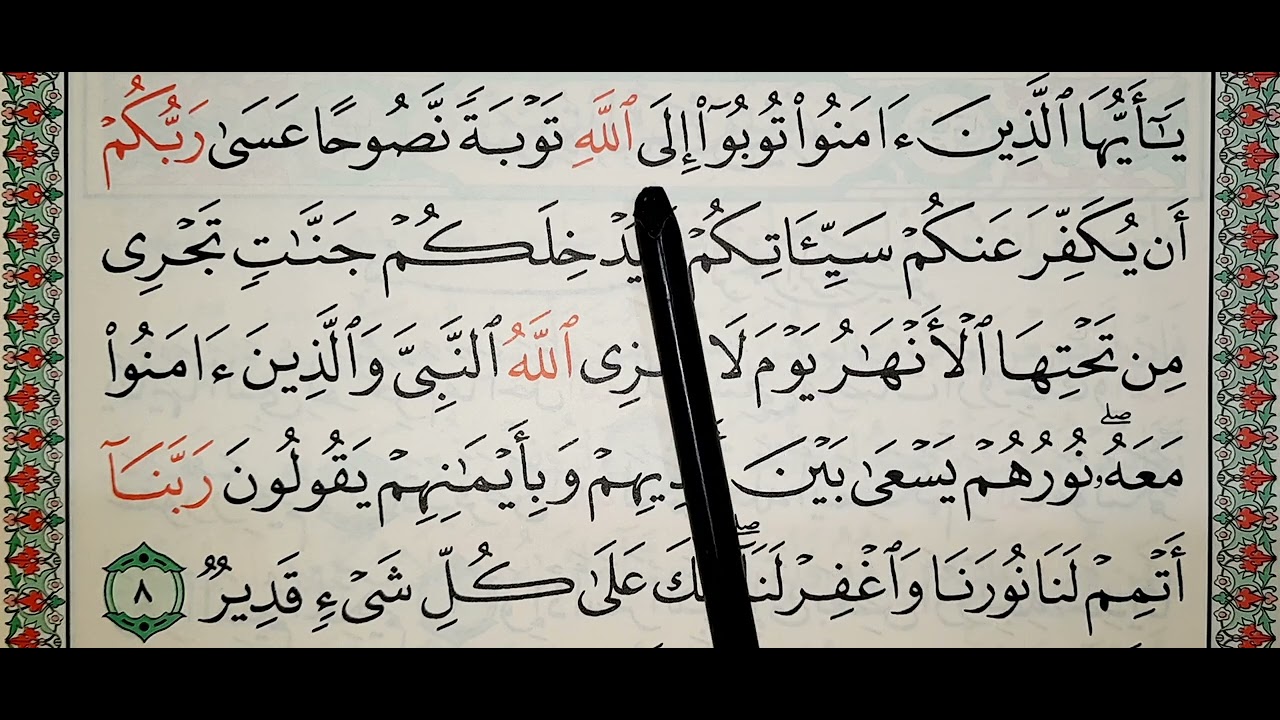 يَـٰٓأَيُّهَا ٱلَّذِينَ ءَامَنُوا۟ تُوبُوٓا۟ إِلَى ٱللَّهِ تَوْبَةً نَّصُوحًا عَسَىٰ رَبُّكُمْ
أَن يُكَفِّرَ عَنكُمْ سَيِّـَٔاتِكُمْ وَيُدْخِلَكُمْ جَنَّـٰتٍ تَجْرِى
مِن تَحْتِهَا ٱلْأَنْهَـٰرُ يَوْمَ لَا ٱللَّهُ ٱلنَّبِىَّ وَٱلَّذِينَ ءَامَنُوا۟
مَعَهُۥ ۖ نُورُهُمْ يَسْعَىٰ بَيْنَ أَيْدِيهِمْ وَبِأَيْمَـٰنِهِمْ يَقُولُونَ رَبَّنَآ
أَتْمِمْ لَنَا نُورَنَا وَٱغْفِرْ لَنَآ ۖ عَلَىٰ كُلِّ شَىْءٍ قَدِيرٌ ٨